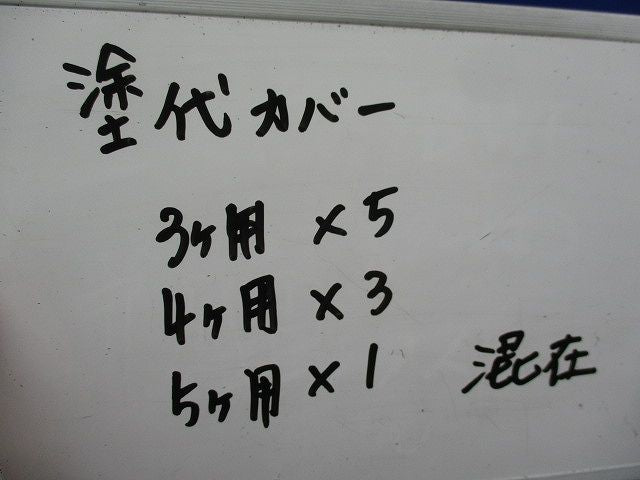 塗代カバー
3ヶ用 × 5
4ヶ用 × 3
5ヶ用 × 1
混在